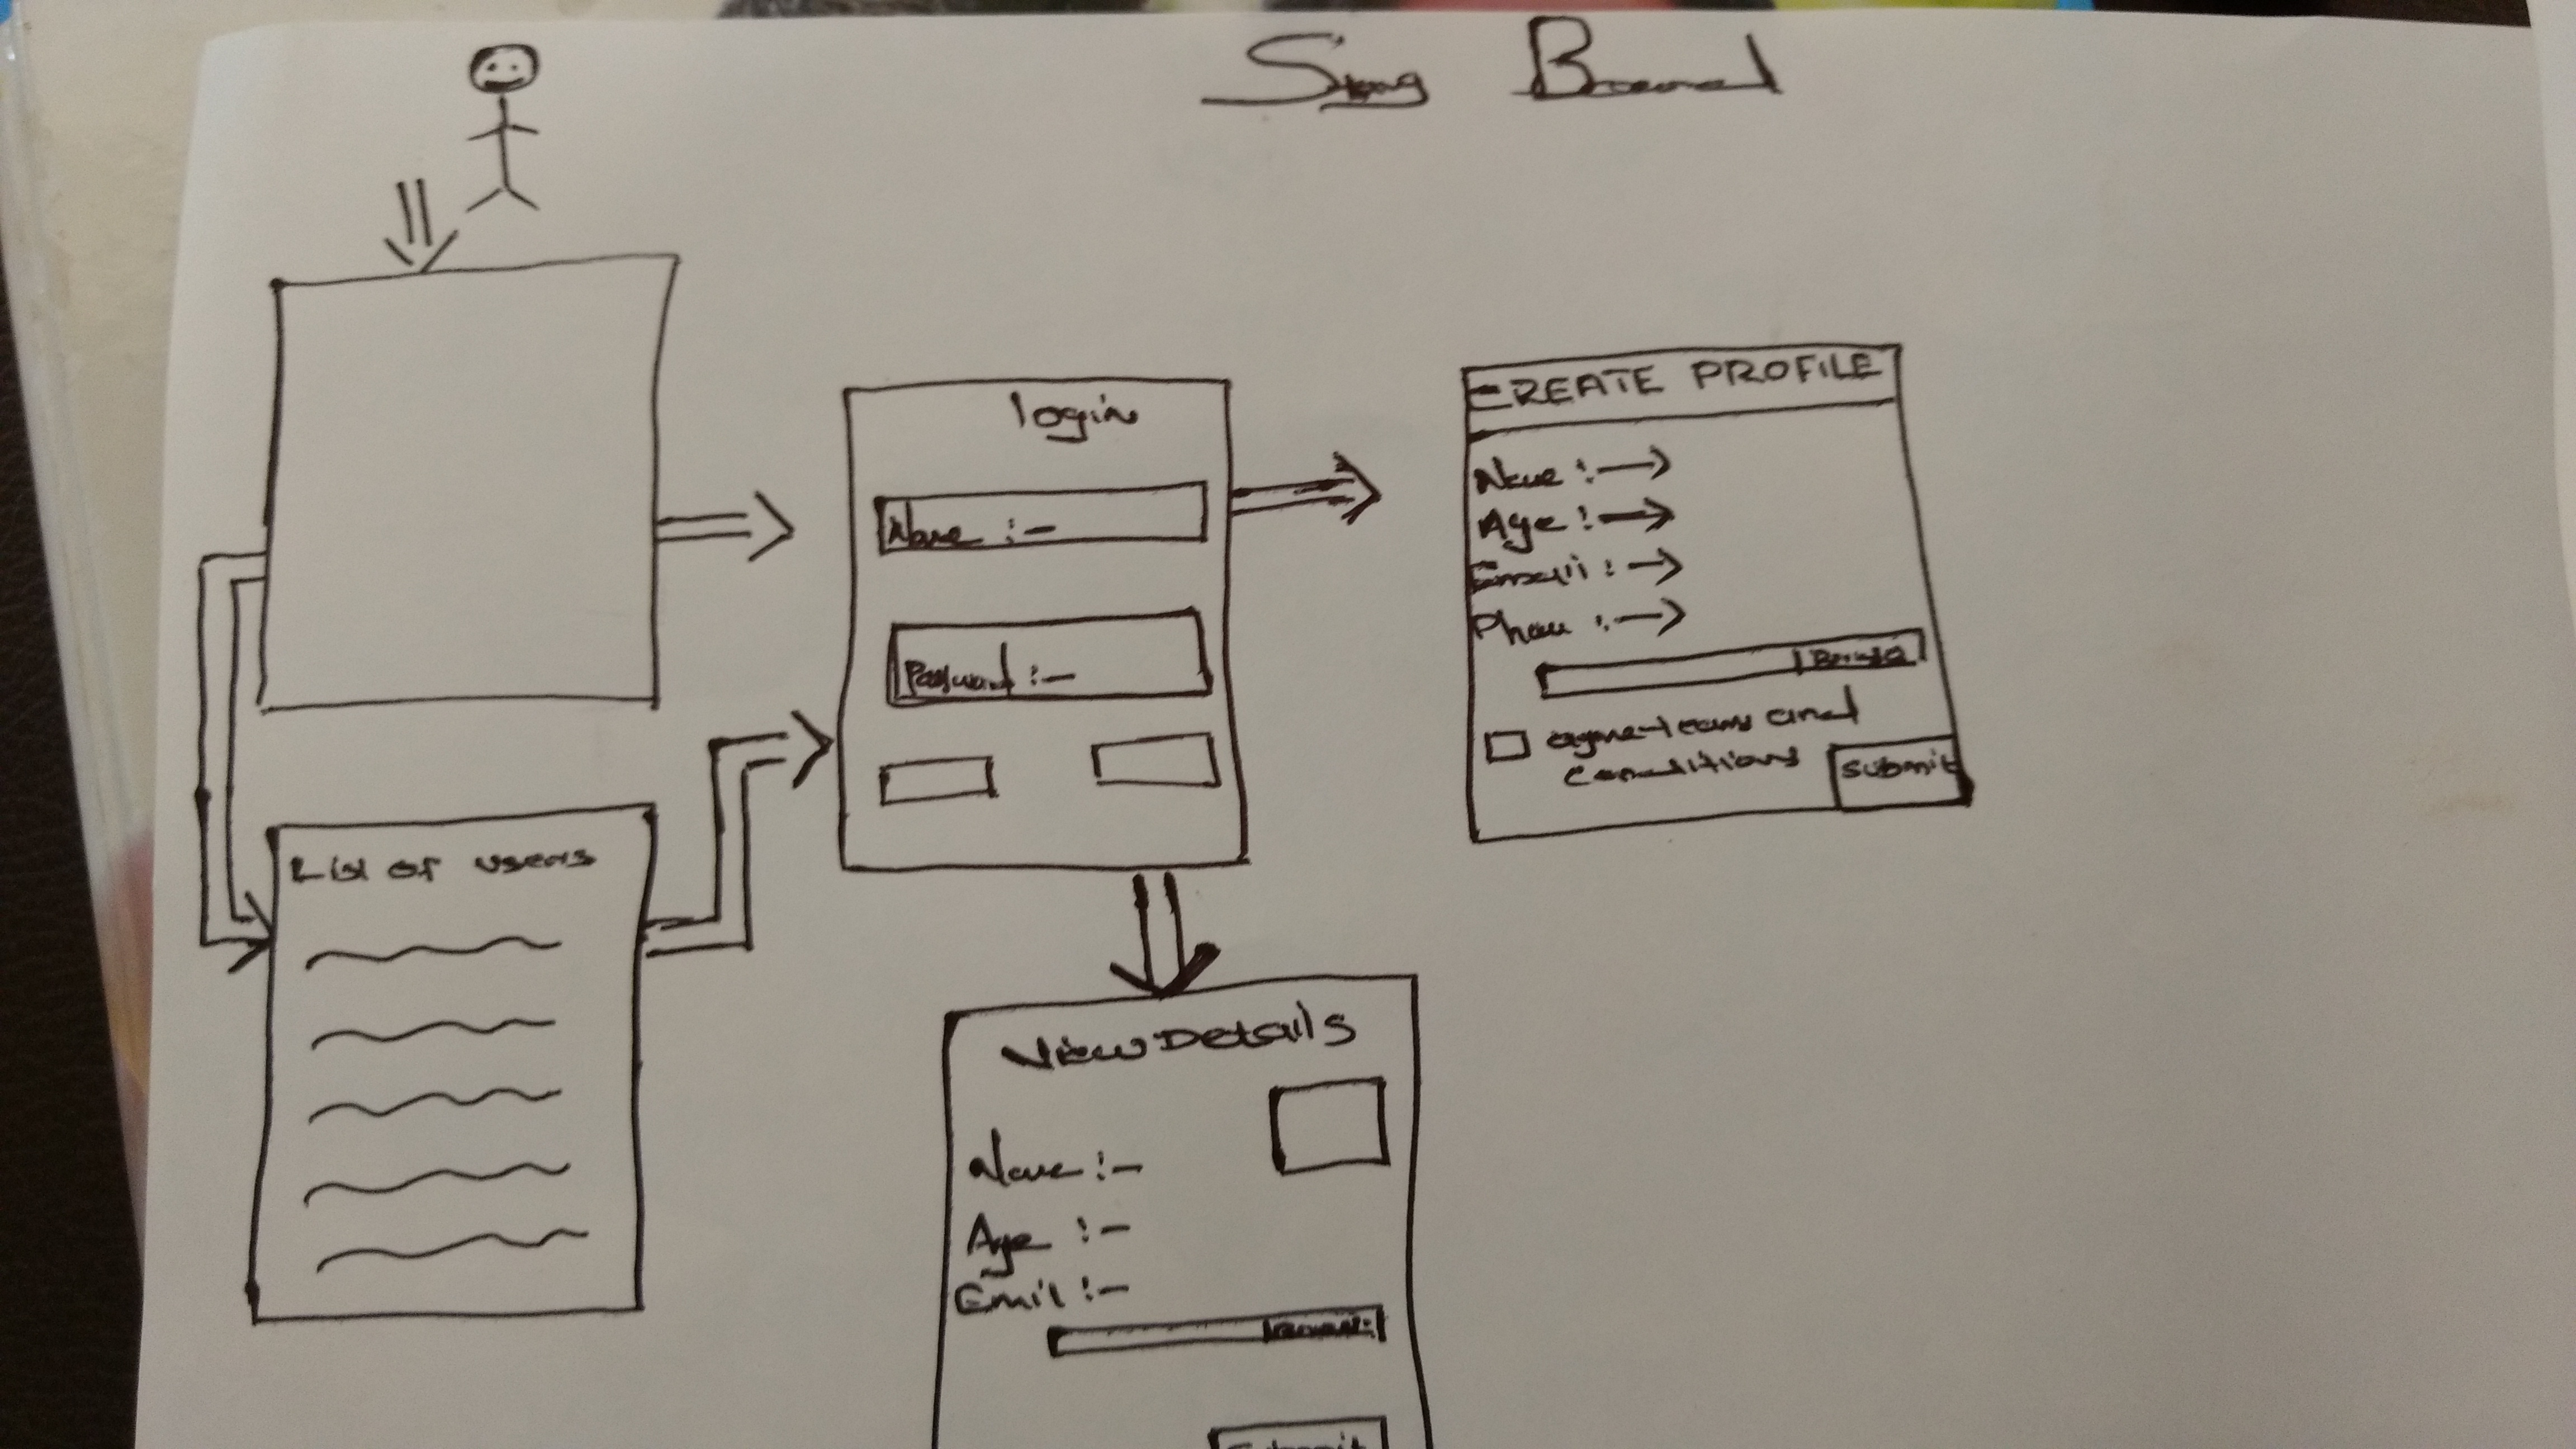 Story Board
login
Name :-
Password :-
CREATE PROFILE
Name :→
Age :→
Email :→
Phone :→
agree terms and
conditions
submit
List of users
View Details
Name :-
Age :-
Emil :-
Submit